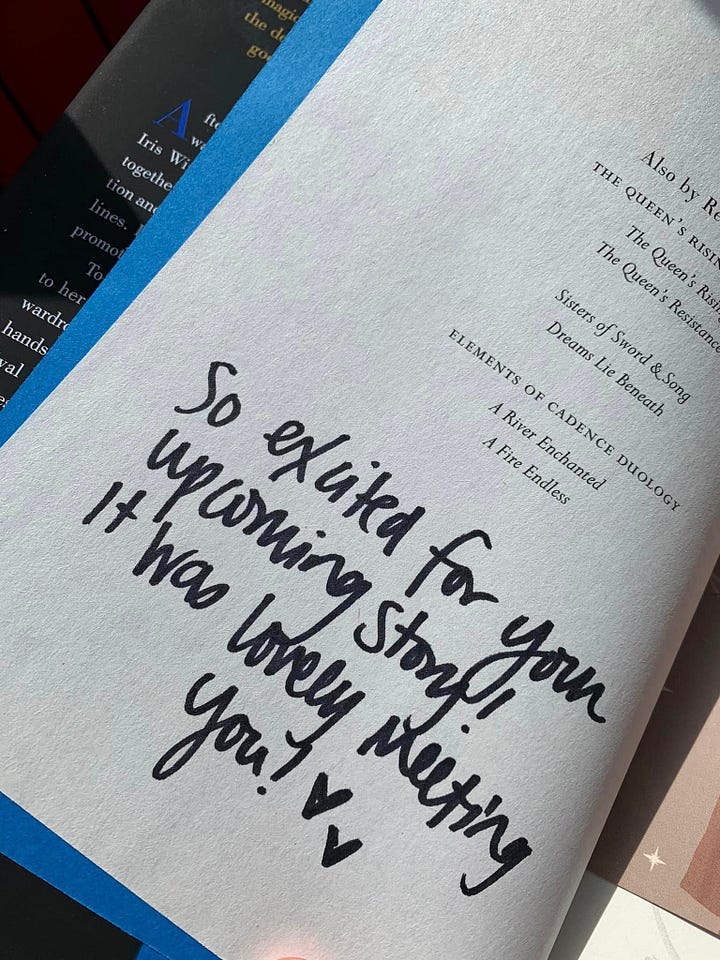 magic
the d
go
A
Iris Wi
togethe
tion and
lines.
promot
To
to her
wardro
hands
val
Also by Re
THE QUEEN'S RISIN
The Queen's Rising
The Queen's Resistance
Sisters of Sword & Song
Dreams Lie Beneath
ELEMENTS OF CADENCE DUOLOGY
A River Enchanted
A Fire Endless
So excited for your
upcoming story!
It was lovely meeting
you!